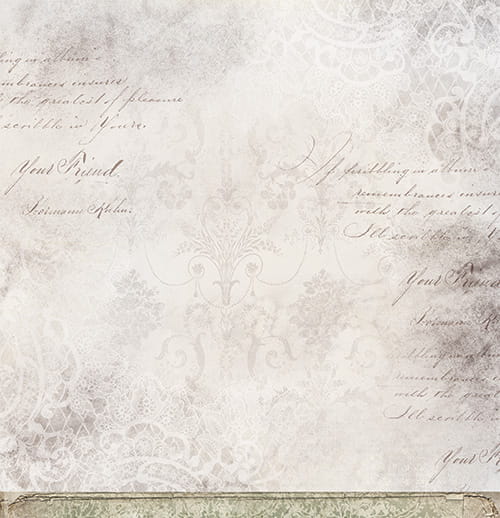 ling in album's
embrances ensures
h the greatest of pleasure
scribble in Yours.
Your Friend.
Hermann Kuhn.
If scribbling in album
remembrances ensure
with the greatest
I'll scribble in
Your Friend
Hermann K
ibbling in a
remembrances
with the grea
I'll scribble
Your F